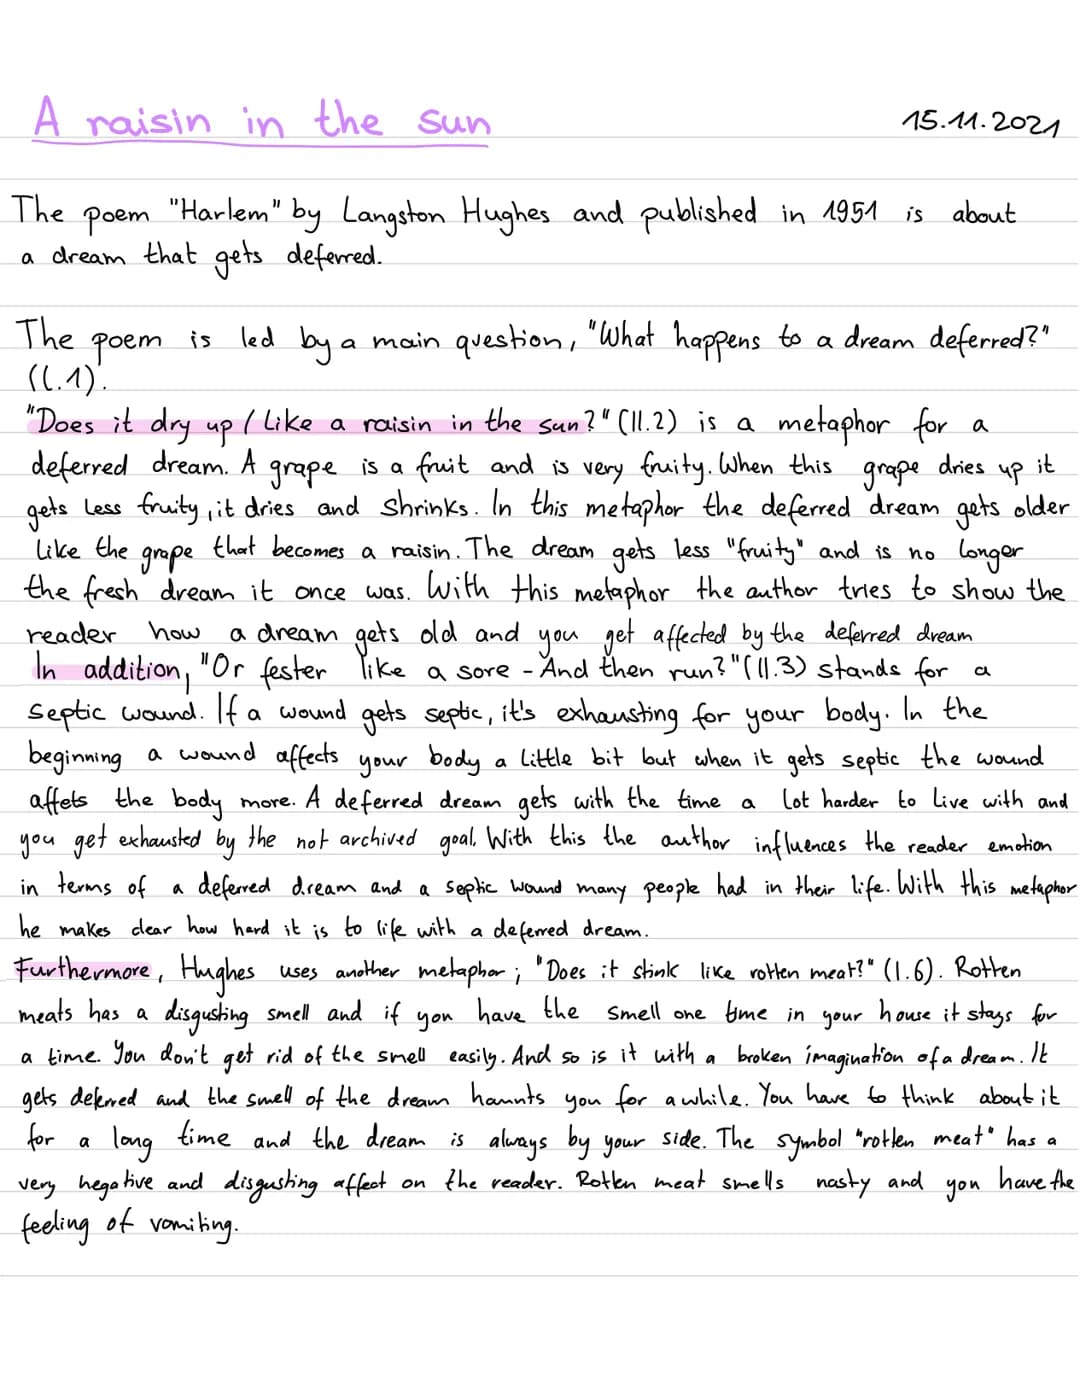 A raisin in the sun
15.11.2021
The poem "Harlem" by Langston Hughes and published in 1951 is about
a dream that gets deferred.
The poem is led by a main question, "What happens to a dream deferred?"
(l.1).
"Does it dry up / Like a raisin in the sun?" (ll.2) is a metaphor for a
deferred dream. A grape is a fruit and is very fruity. When this grape dries up it
gets less fruity, it dries and shrinks. In this metaphor the deferred dream gets older
like the grape that becomes a raisin. The dream gets less "fruity" and is no longer
the fresh dream it once was. With this metaphor the author tries to show the
reader how a dream gets old and you get affected by the deferred dream
In addition, "Or fester like a sore - And then run?" (ll.3) stands for a
septic wound. If a wound gets septic, it's exhausting for your body. In the
beginning a wound affects your body a little bit but when it gets septic the wound
affets the body more. A deferred dream gets with the time a lot harder to live with and
you get exhausted by the not archived goal. With this the author influences the reader emotion
in terms of a deferred dream and a septic wound many people had in their life. With this metaphor
he makes clear how hard it is to life with a deferred dream.
Furthermore, Hughes uses another metaphor; "Does it stink like rotten meat?" (l.6). Rotten
meats has a disgusting smell and if you have the smell one time in your house it stays for
a time. You don't get rid of the smell easily. And so is it with a broken imagination of a dream. It
gets deferred and the smell of the dream haunts you for a while. You have to think about it
for a long time and the dream is always by your side. The symbol "rotten meat" has a
very negative and disgusting affect on the reader. Rotten meat smells nasty and you have the
feeling of vomiting.